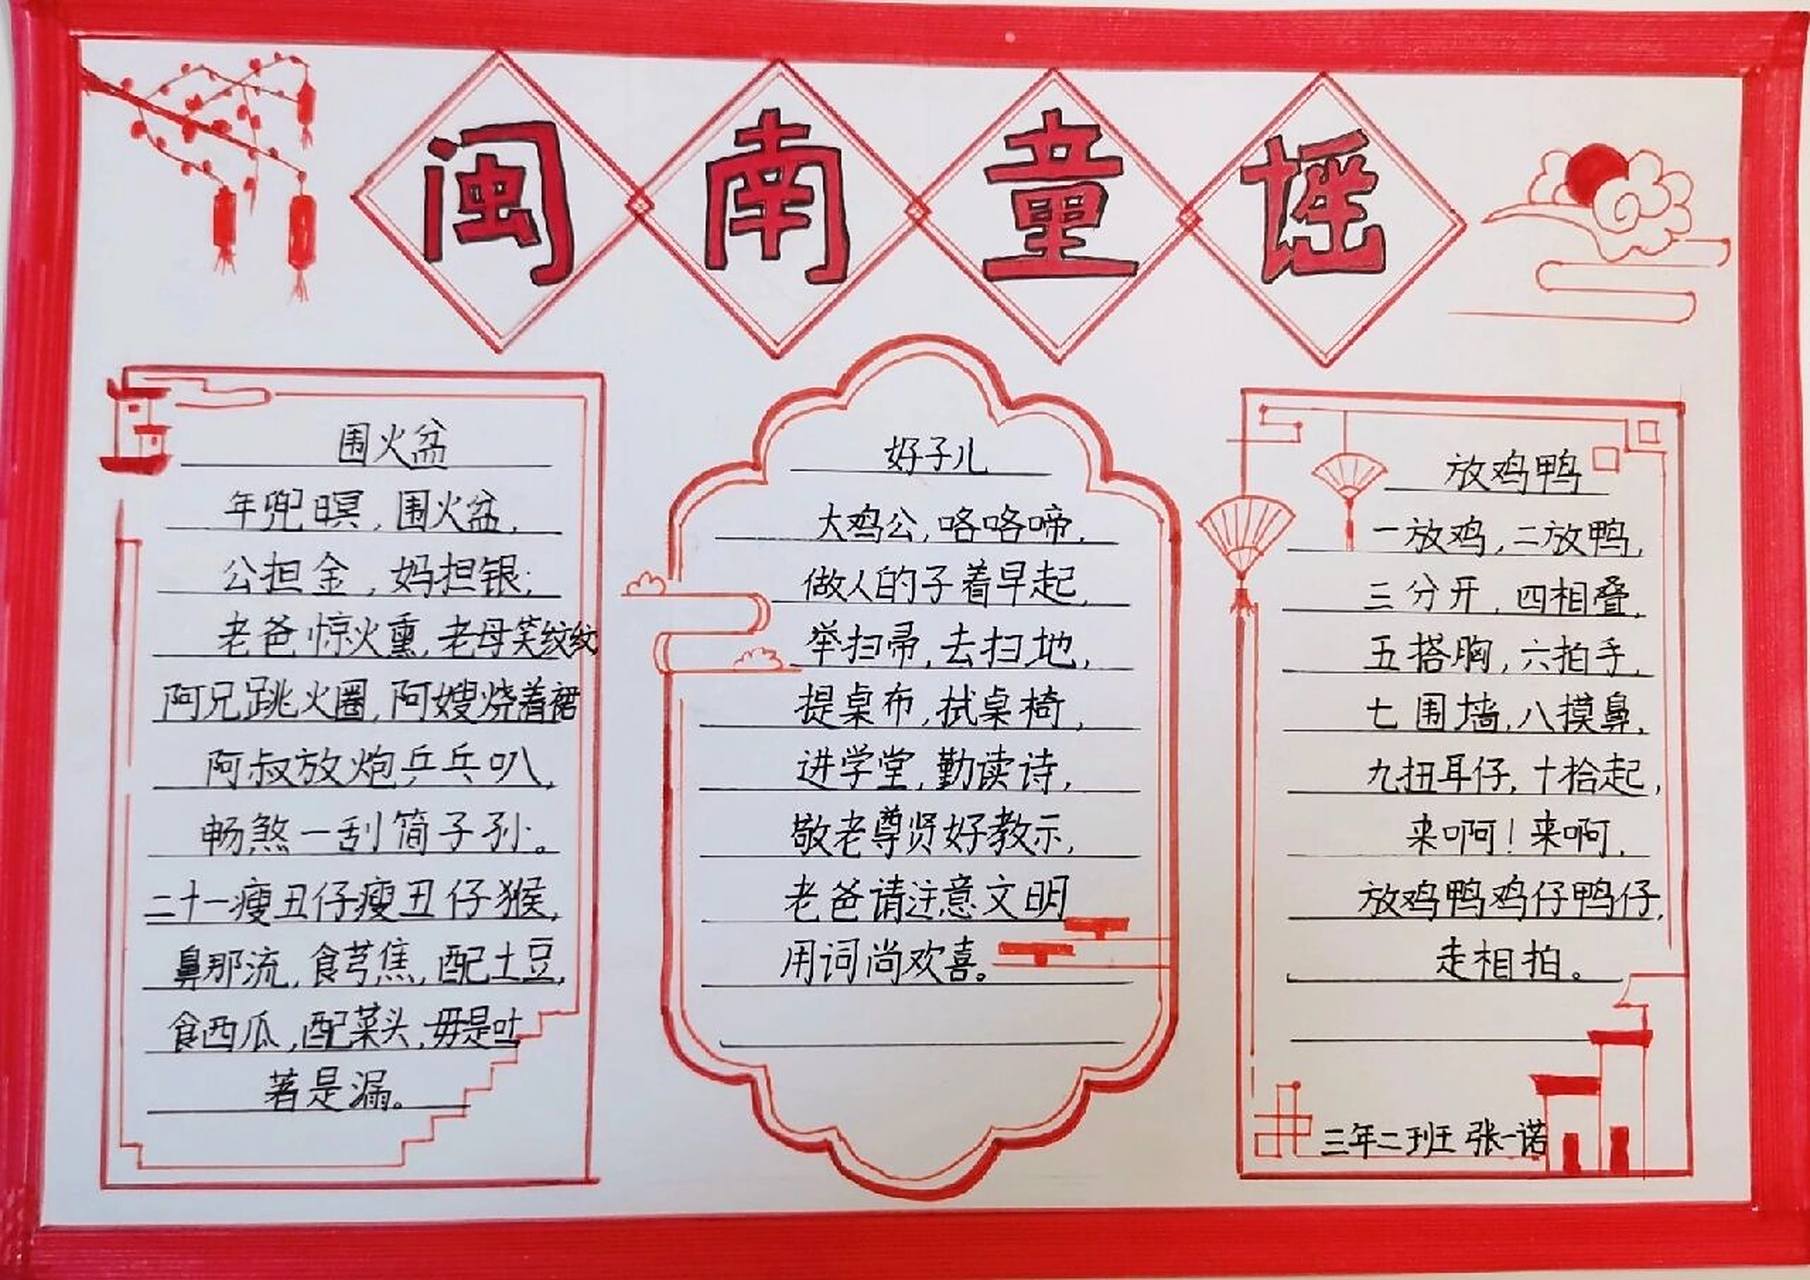 闽南童谣
围火盆
年兜暝，围火盆，
公担金，妈担银；
老爸惊火熏，老母笑纹纹
阿兄跳火圈，阿嫂烧着裙
阿叔放炮乒乓叭，
畅煞一刮简子孙。
二十一瘦丑仔瘦丑仔猴，
鼻那流，食芎焦，配土豆，
食西瓜，配菜头，毋是吐
著是漏。
好子儿
大鸡公，咯咯啼，
做人的子着早起，
举扫帚，去扫地，
提桌布，拭桌椅，
进学堂，勤读诗，
敬老尊贤好教示，
老爸请注意文明
用词尚欢喜。
放鸡鸭
一放鸡，二放鸭，
三分开，四相叠，
五搭胸，六拍手，
七围墙，八摸鼻，
九扭耳仔，十拾起，
来啊！来啊，
放鸡鸭鸡仔鸭仔，
走相拍。
三年二班 张一诺